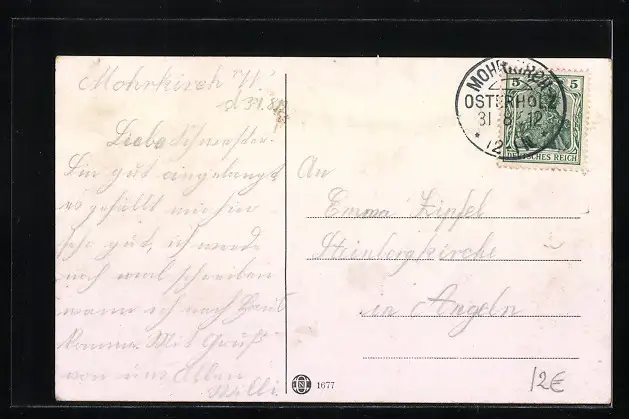 Mohrkirch W.
d 31.8.12
Liebe Schwester.
Bin gut angelangt,
es gefällt mir hier
sehr gut, ich werde
noch mal schreiben
wann ich nach Haus
komme. Mit Gruß
von uns Allen
Willi.
MOHRKIRCH
OSTERHOLZ
31.8.12
5 5
DEUTSCHES REICH
An
Emma Zipfel
Steinbergkirche
in Angeln
1677
12€